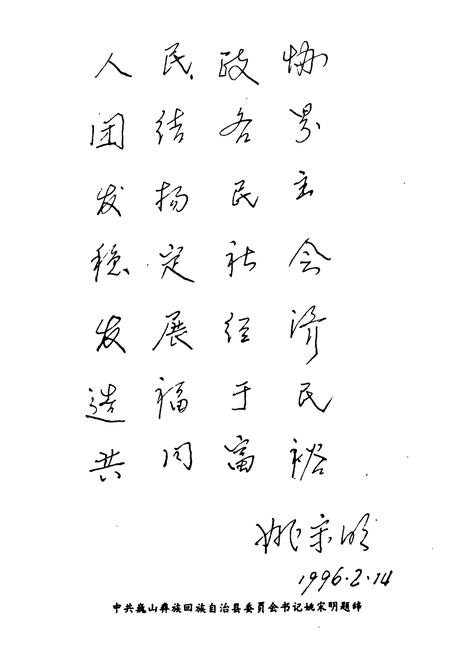 人民政协
团结各界
发扬民主
稳定社会
发展经济
造福于民
共同富裕
姚宋明
1996.2.14
中共巍山彝族回族自治县委员会书记姚宋明题缔